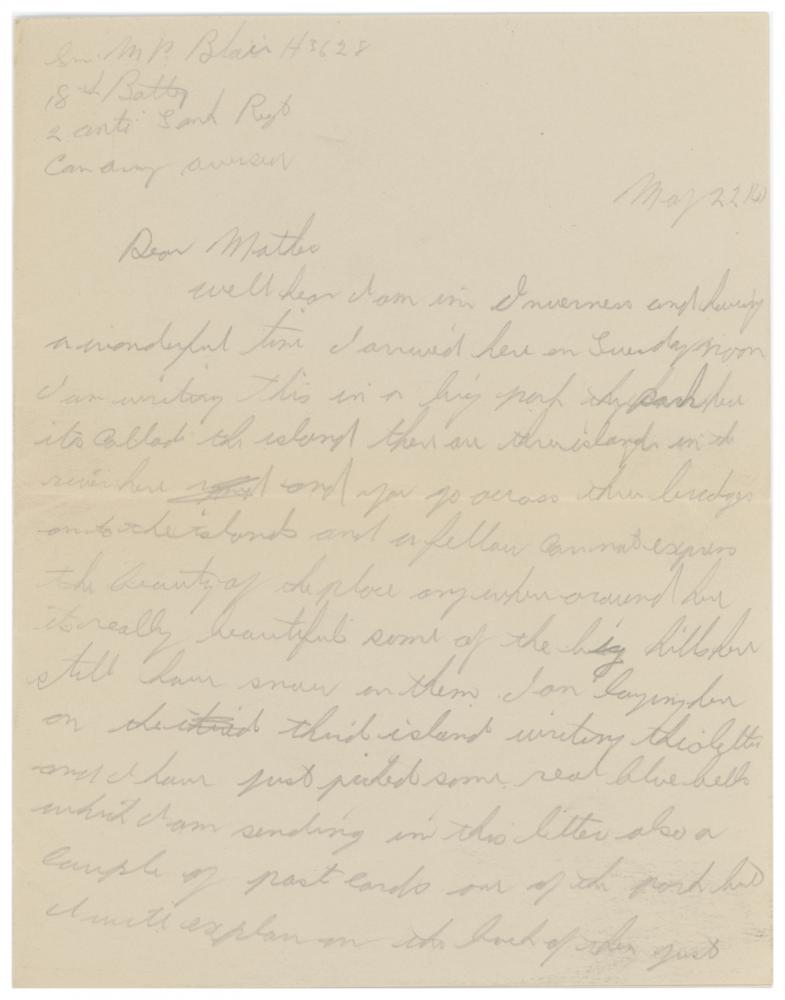 Gnr. M P. Blair H3628
18th Batty
2 anti Tank Regt
Can army oversea
May 22/41
Dear Mother
well hear I am in Inverness and having
a wonderful time I arrived here on Tuesday noon
I am writing this in a big park the park here
its called the island there are three islands in the
river here and you go across three bridges
on to the islands and a fellow cannot express
the beauty of the place any where around here
its really beautiful some of the big hills here
still have snow on them I am laying here
on the third island writing this letter
and I have just picked some real blue bells
which I am sending in this letter also a
couple of post cards one of the park here
I will explain on the back of them just